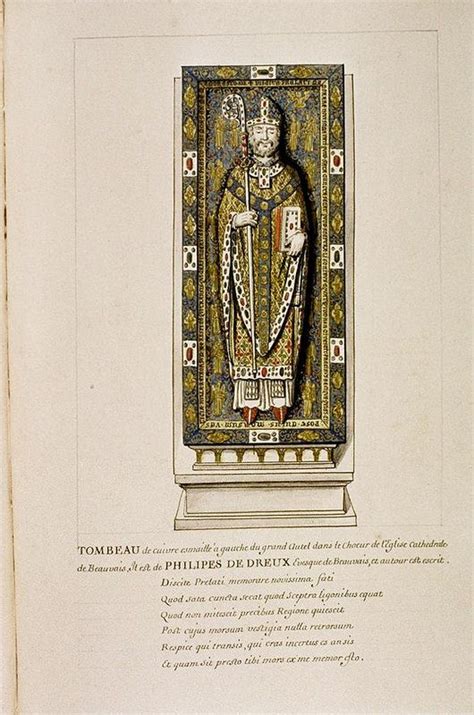 TOMBEAU de cuivre esmaillé a gauche du grand Autel dans le Choeur de l'Eglise Cathedrale
de Beauvais, Il est de PHILIPES DE DREUX Evesque de Beauvais, et autour est escrit.
Discite Prelati memorare novissima fati
Quod sata cuncta secat quod Sceptra ligonibus equat
Quod non mitescit precibus Regione quiescit
Post cujus morsum vestigia nulla retrorsum
Respice qui transis, qui cras incertus es ansis
Et quam sit presto tibi mors ex me memor esto.